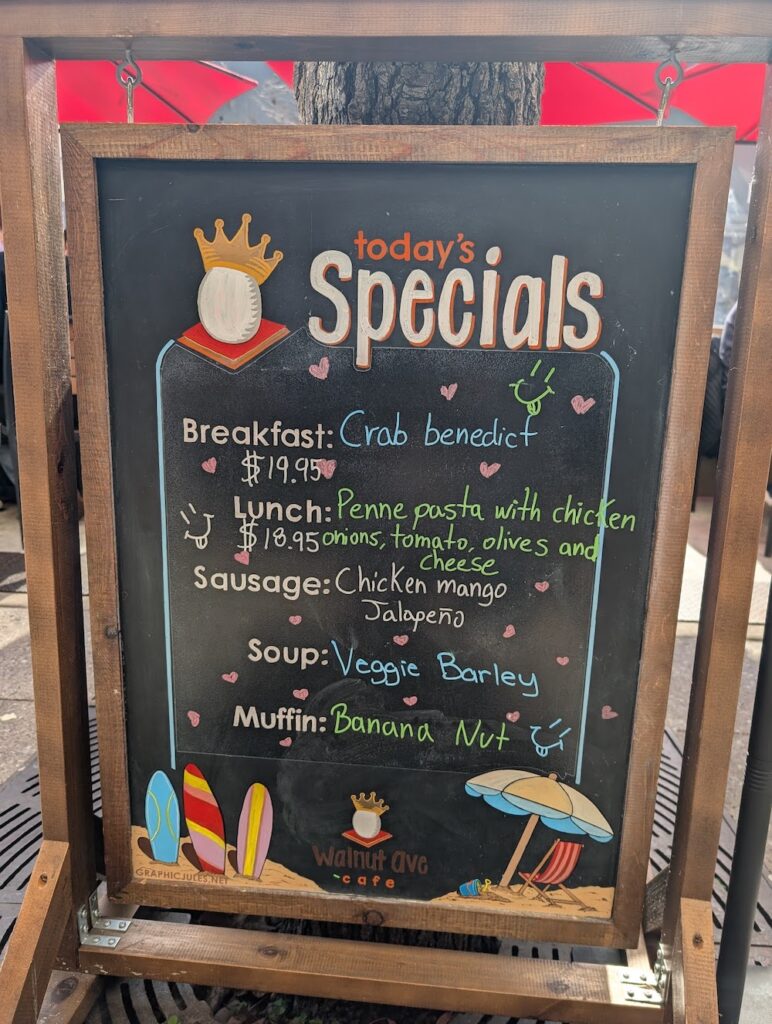 today's
Specials
Breakfast: Crab benedict
$19.95
Lunch: Penne pasta with chicken
$18.95 onions, tomato, olives and
cheese
Sausage: Chicken mango
Jalapeño
Soup: Veggie Barley
Muffin: Banana Nut
Walnut ave
cafe
GRAPHICJULES.NET